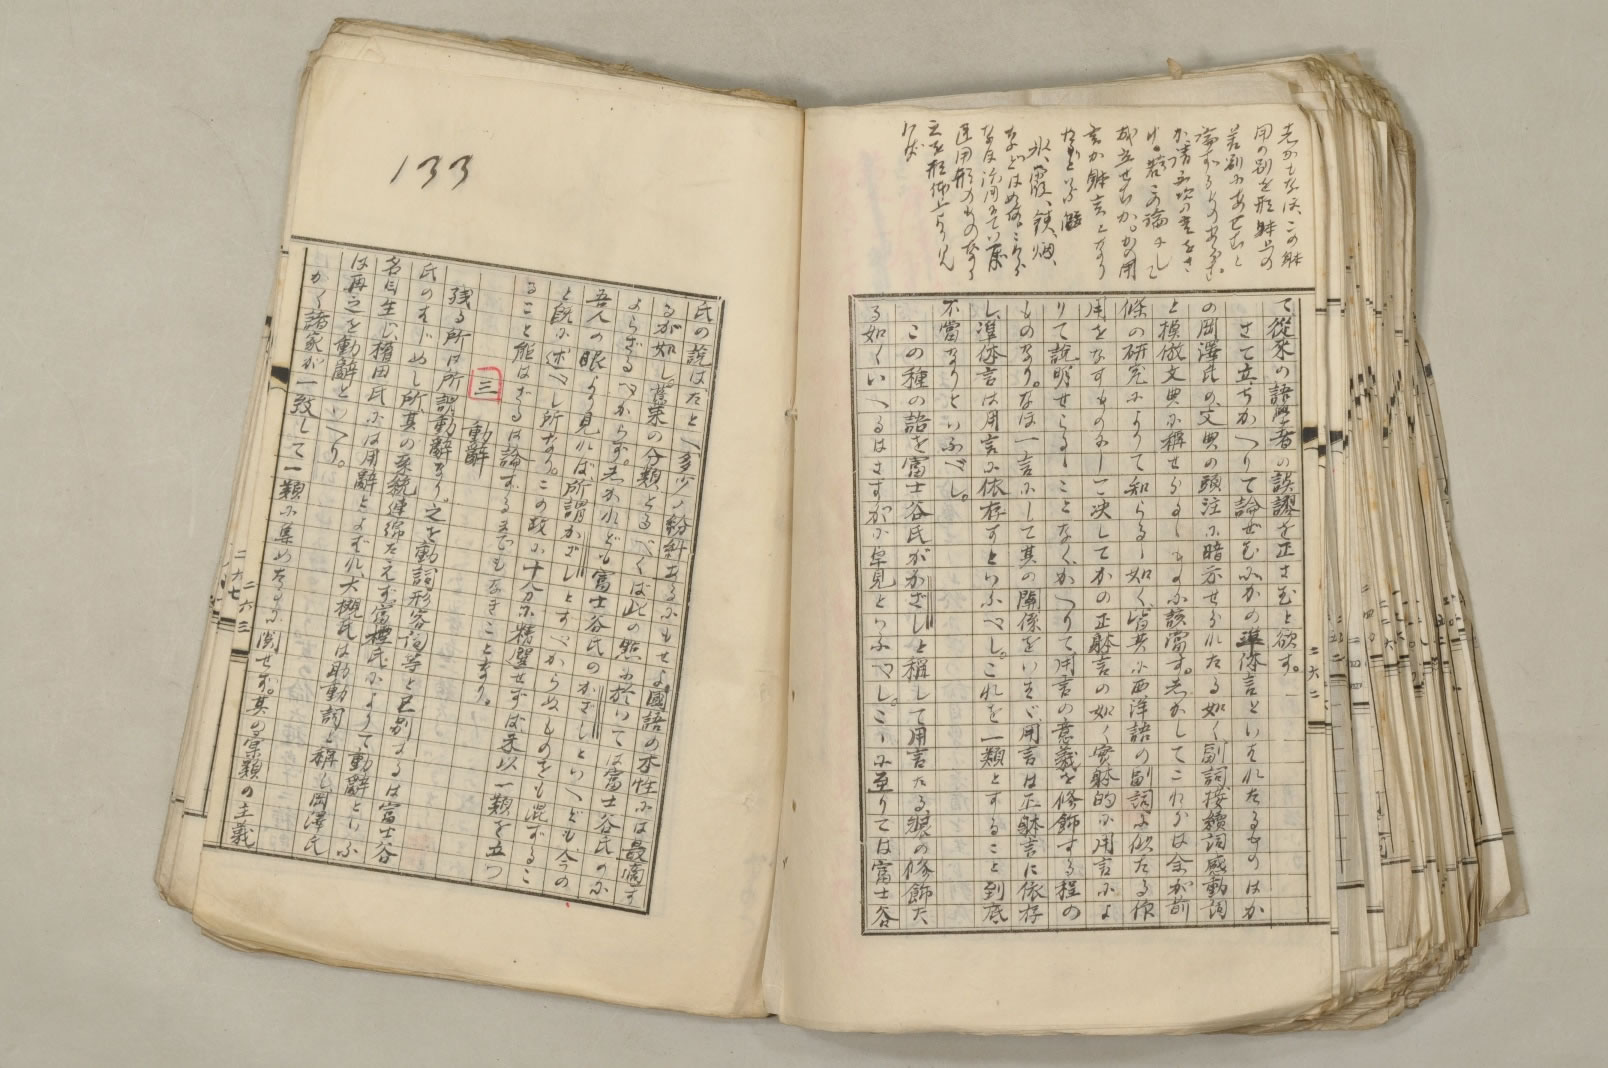 しかもなほ、この体
用の別を形体上の
差別にあらむと
論ずるものあらば、
か、請ふ
け。若この論にして
成立せむか。かの用
言が体言となり
たりといふ
氷、霞、鉄、烟、
などはめな
なほ活用
連用形のものなる
これを形体上より見
れば
て従来の語学者の誤謬を正さむと欲す。
さて立ちかへりて論ぜむにかの準体言といはれたるものはか
の岡澤氏の文典の頭注に暗示せられたる如く副詞接続詞感動詞
と模倣文典に稱せらるゝものに該当す。しかしてこれらは余が前
條の研究によりて知らるゝ如く皆共に西洋語の副詞に似たる作
用をなすものにして決してかの正体言の如く実体的に用言によ
りて説明せらるゝことなく、かへりて用言の意義を修飾する程の
ものなり。なほ一言にして其の関係をいはゞ、用言は正体言に依存
し、準体言は用言に依存すといふべし。これを一類とすること到底
不當なりといふべし。
この種の語を富士谷氏がかざしと稱して用言たる装の修飾た
る如くいへるはさすがに卓見といふべし。こゝに至りては富士谷
二六二
133
氏の説はたとへ多少ノ紛糾あるにもせよ國語の本性には最適す
るが如し。従来の分類とるべくば此の点に於いては富士谷氏のに
よらざるべからず。しかれども富士谷氏のかざしといへども、今の
吾人の眼より見れば所謂かざしとすべからぬものをも混ずるこ
と既に述べし所なり。この故に十分に精嚴せずば未以一類を立つ
ること能はざるは論ずるまでもなきことなり。
三 動辭
残る所は所謂動辭なり。之を動詞形容詞等と區別するは富士谷
氏のはじめし所其の系統連綿たえず富樫氏によりて動辭といふ
名目生じ、権田氏には用辭とよばれ、大槻氏は助動詞と稱し岡澤氏
は再之を動辭といへり。
かく諸家が一致して一類に集めたるに関せず。其の彙類の主義
二六三
二九七